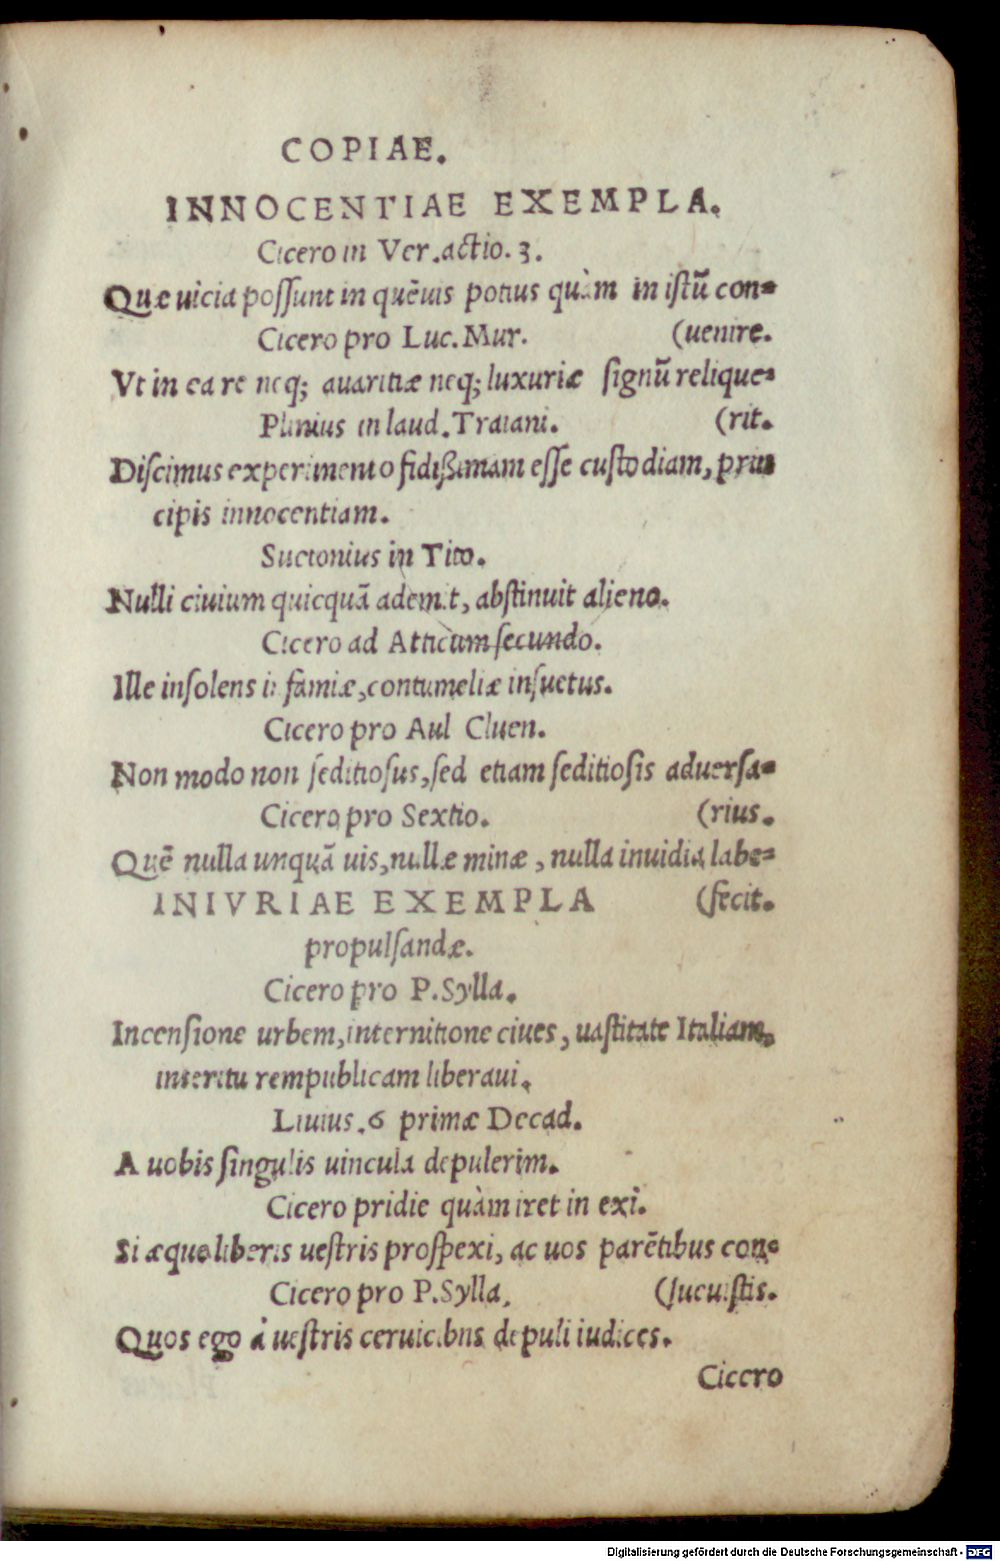 COPIAE.
INNOCENTIAE EXEMPLA.
Cicero in Ver.actio.3.
Quæ uicia possunt in quẽuis potius quàm in istũ con-
Cicero pro Luc.Mur. (uenire.
Vt in ea re neq; auaritiæ neq; luxuriæ signũ relique-
Plinius in laud.Traiani. (rit.
Discimus experimento fidißimam esse custodiam, prin
cipis innocentiam.
Suetonius in Tito.
Nulli ciuium quicquã ademit, abstinuit alieno.
Cicero ad Atticum secundo.
Ille insolens infamiæ,contumeliæ insuetus.
Cicero pro Aul Cluen.
Non modo non seditiosus,sed etiam seditiosis aduersa-
Cicero pro Sextio. (rius.
Quẽ nulla unquã uis,nullæ minæ, nulla inuidia labe-
INIVRIAE EXEMPLA (fecit.
propulsandæ.
Cicero pro P.Sylla.
Incensione urbem,internitione ciues, uastitate Italiam,
interitu rempublicam liberaui.
Liuius.6 primæ Decad.
A uobis singulis uincula depulerim.
Cicero pridie quàm iret in exi.
Si æque liberis uestris prospexi, ac uos parẽtibus con-
Cicero pro P.Sylla. (sueuistis.
Quos ego à uestris ceruicibns depuli iudices.
Cicero
Digitalisierung gefördert durch die Deutsche Forschungsgemeinschaft - DFG